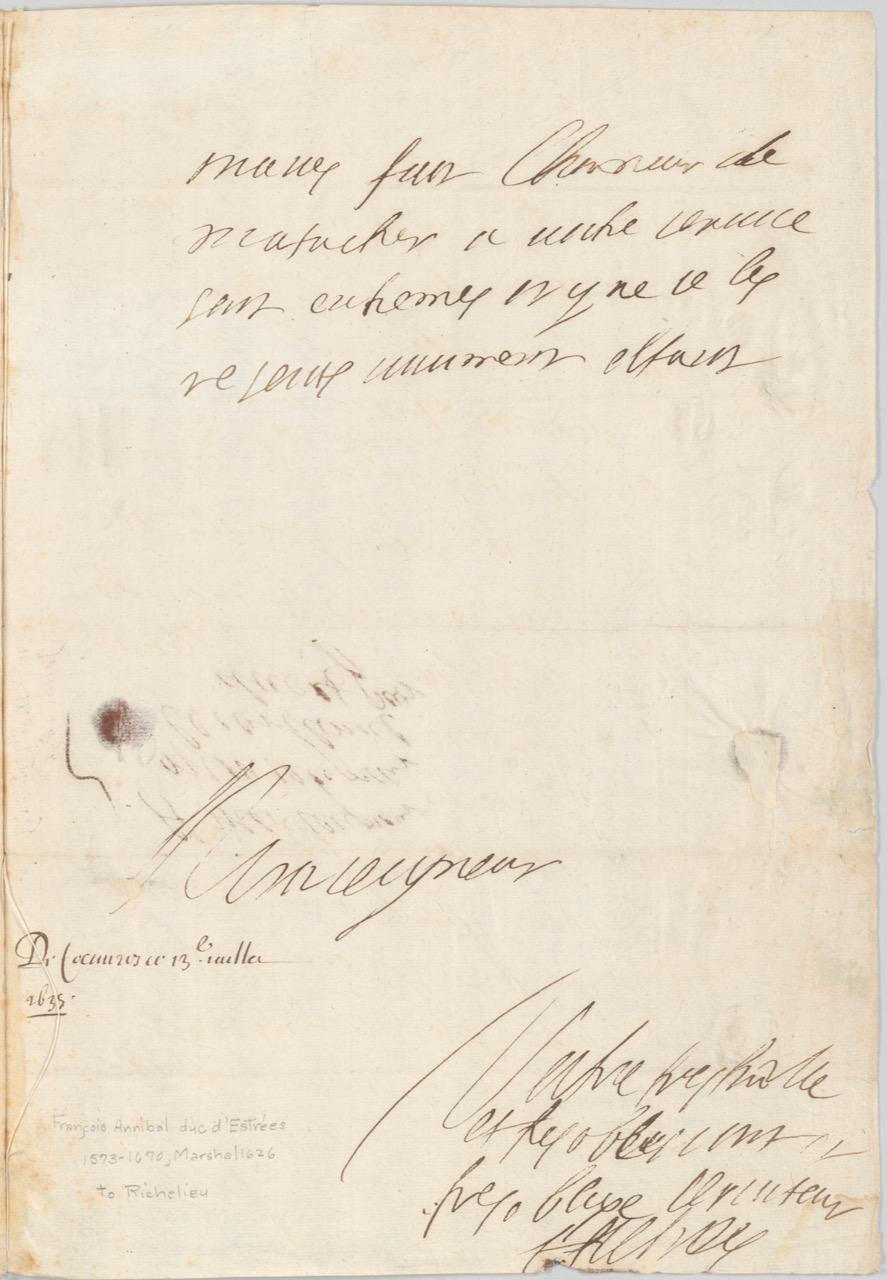 maues fait lhonneur de
matacher a vostre seruice
sont extremes et que ie les
resents
estant
Monseigneur
De Coeuures ce 13e iuillet
1635.
Vostre tres humble
et tres obeissant et
tres oblige seruiteur
dEstrées
François Annibal duc d'Estrées
1573-1670, Marshal 1626
to Richelieu